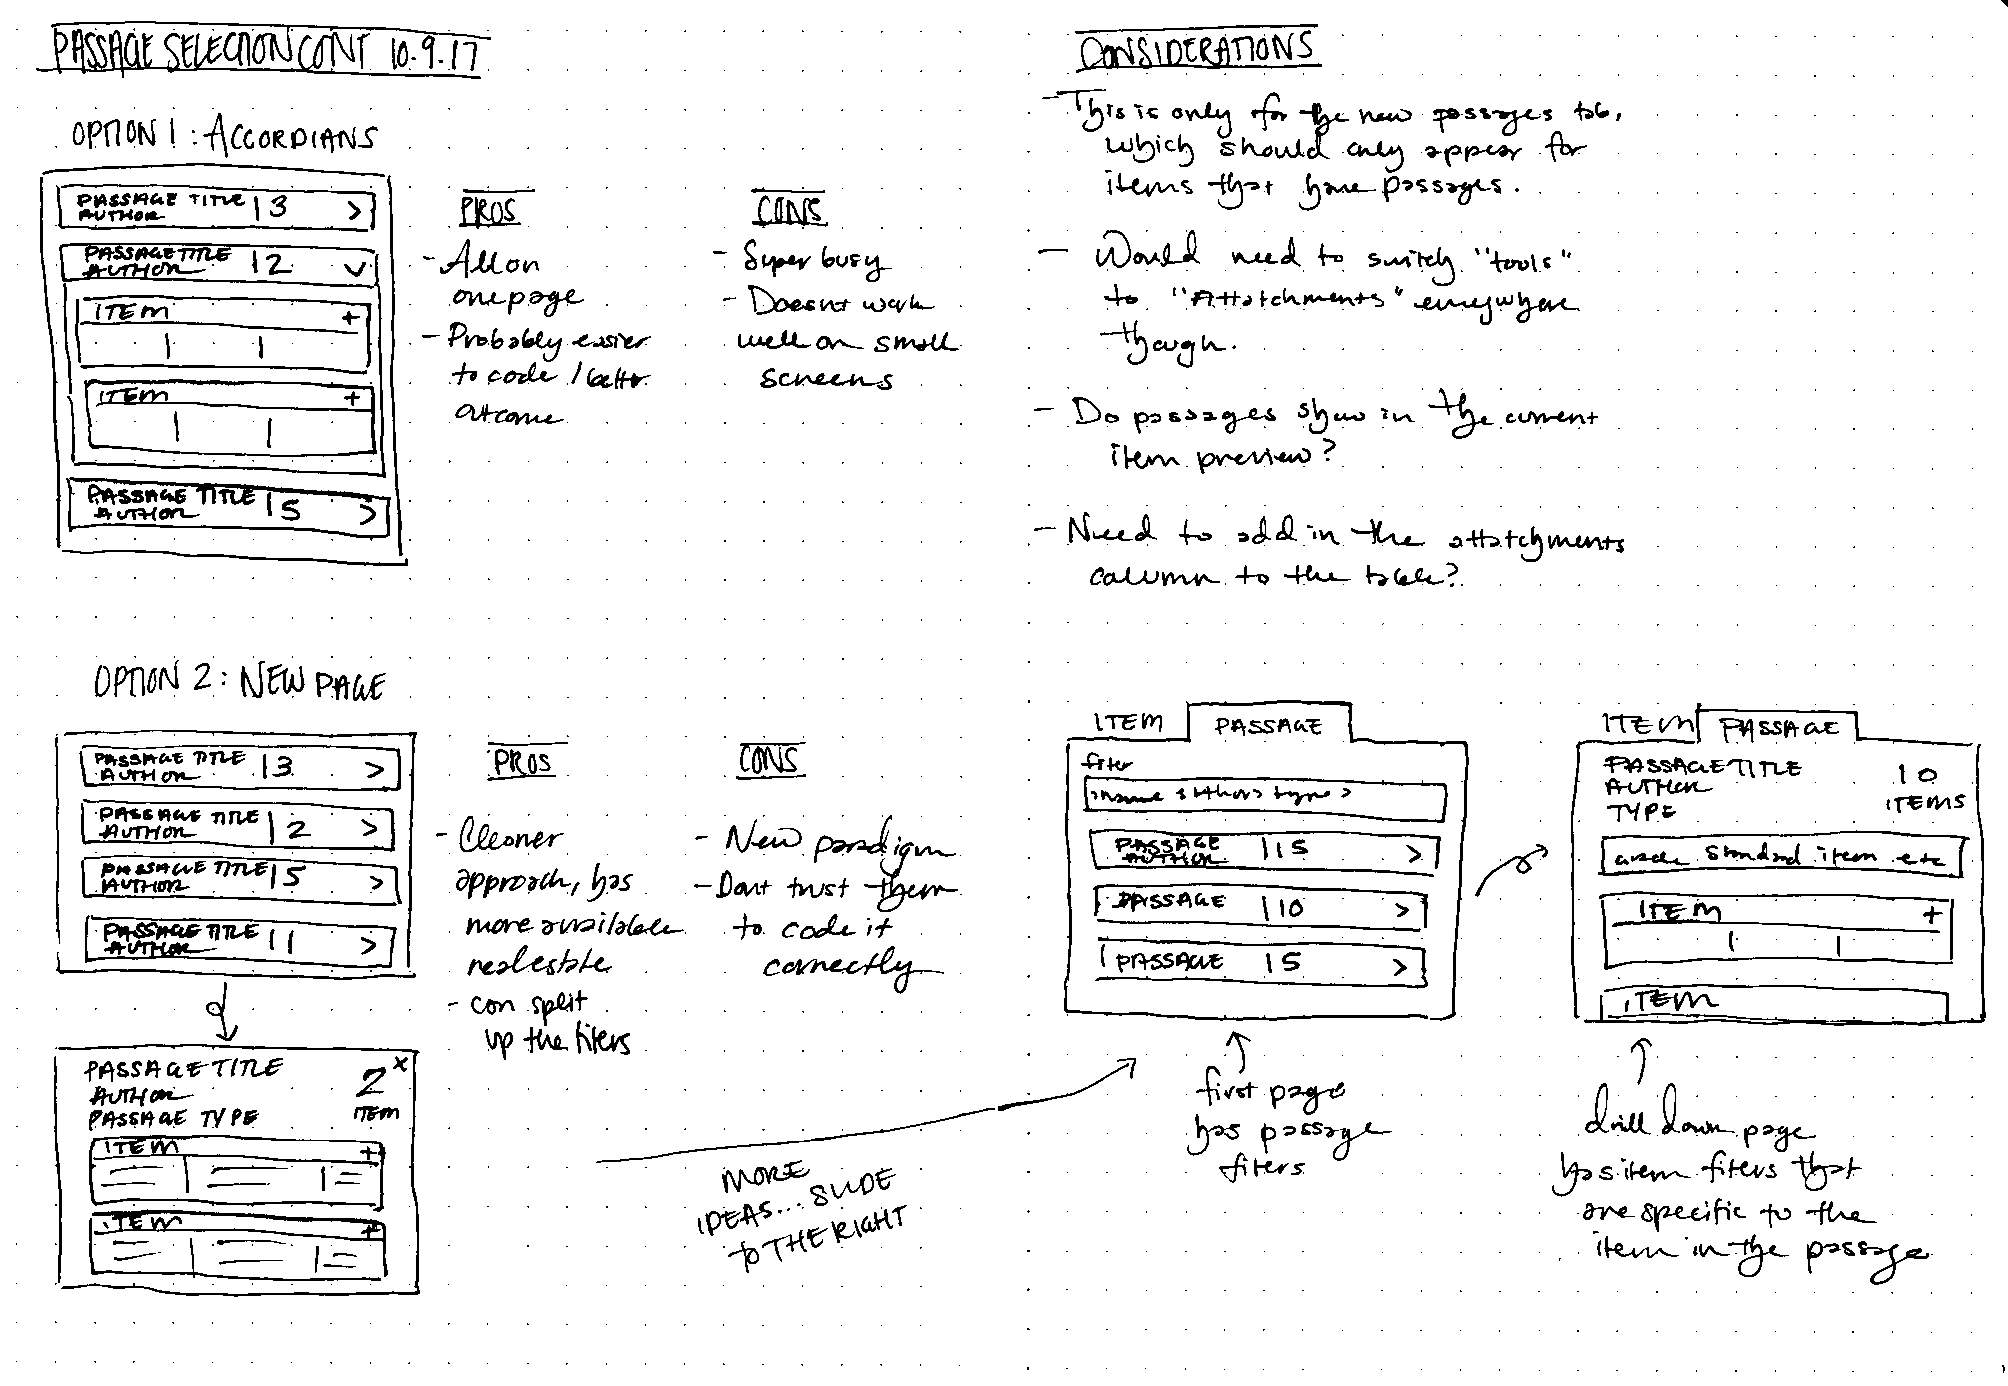 PASSAGE SELECTION CONT 10.9.17
OPTION 1: ACCORDIANS
PASSAGE TITLE | 3 >
AUTHOR
PASSAGE TITLE | 2
AUTHOR
ITEM +
ITEM +
PASSAGE TITLE | 5 >
AUTHOR
PROS
- All on
one page
- Probably easier
to code / better
outcome
CONS
- Super busy
- Doesnt work
well on small
screens
OPTION 2: NEW PAGE
PASSAGE TITLE | 3 >
AUTHOR
PASSAGE TITLE | 2 >
AUTHOR
PASSAGE TITLE | 5 >
AUTHOR
PASSAGE TITLE | 1 >
AUTHOR
PASSAGE TITLE 2 x
AUTHOR
PASSAGE TYPE ITEM
ITEM +
ITEM +
PROS
- Cleaner
approach, has
more available
real estate
- can split
up the filters
CONS
- New paradigm
- Dont trust them
to code it
correctly
MORE
IDEAS... SLIDE
TO THE RIGHT
CONSIDERATIONS
- This is only for the new passages tab,
which should only appear for
items that have passages.
- Would need to switch "tools"
to "Attatchments" everywhere
though.
- Do passages show in the current
item preview?
- Need to add in the attatchments
column to the table?
ITEM PASSAGE
filter
name author type >
PASSAGE | 15 >
AUTHOR
PASSAGE | 10 >
PASSAGE | 5 >
first page
has passage
filters
ITEM PASSAGE
PASSAGE TITLE 10
AUTHOR ITEMS
TYPE
grade standard item etc
ITEM +
ITEM
drill down page
has item filters that
are specific to the
item in the passage